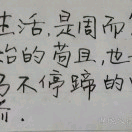 生活,是周而
始的苟且,也
马不停蹄的
奔